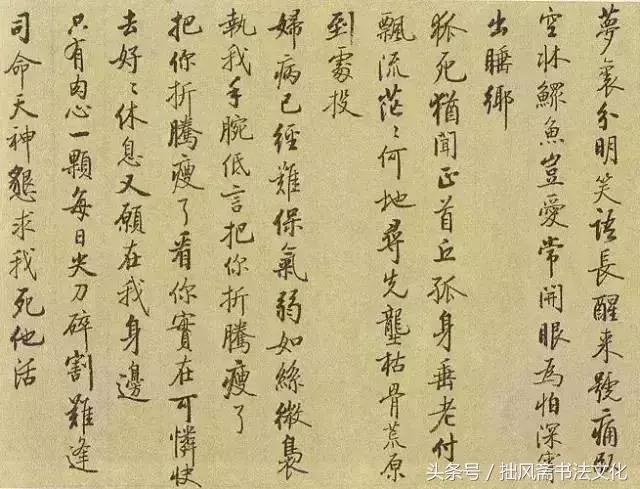 夢裏分明笑語長醒来號痛卧
空牀鰥魚豈愛常開眼為怕深宵
出睡鄉
狐死猶聞正首丘孤身垂老付
飄流茫〻何地尋先壟枯骨荒原
到處投
婦病已經難保氣弱如絲微裊
執我手腕低言把你折騰瘦了
把你折騰瘦了看你實在可憐快
去好〻休息又願在我身邊
只有肉心一顆每日尖刀碎割難逢
司命天神懇求我死他活
头条号 / 拙风斋书法文化